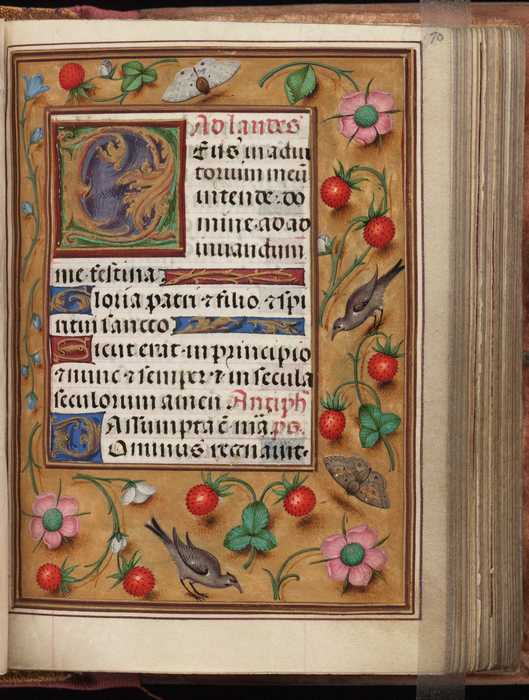 70
Ad laudes
Deus in adiu
torium meū
intende. do
mine ad ad
iuuandum
me festina
Gloria patri ⁊ filio ⁊ spi
ritui sancto
Sicut erat in principio
⁊ nunc ⁊ semper ⁊ in secula
seculorum amen Antiph
Assumpta ē maa. ps.
Dominus regnauit.